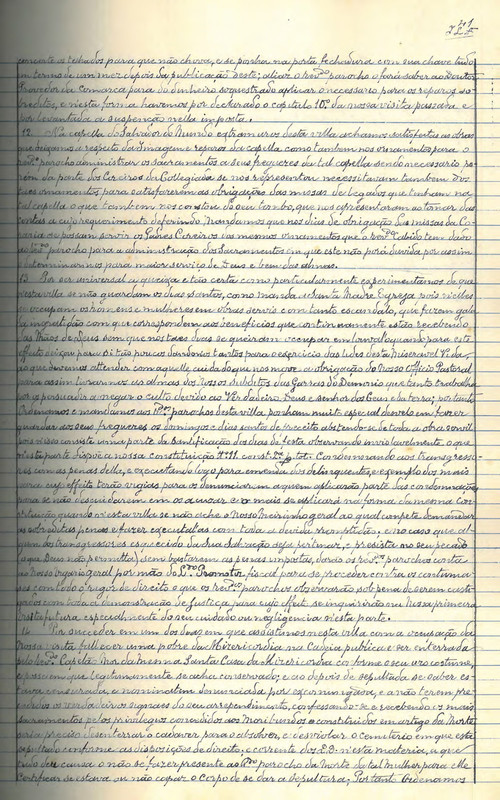 cimente os telhados para que não chova, e se ponha na porta fechadura com sua chave tudo
em termo de um mez depois da publicação deste; aliaz o revdo parocho o fará saber ao Doutor
Provedor da Comarca para do dinheiro sequestrado aplicar o necessario para os reparos so-
breditos, e nesta forma havemos por declarado o capitulo 10º da nossa visita passada e
por levantada a suspenção nella imposta.
12. Na capella do Salvador do Mundo extramuros desta villa achamos satisfeitas as obras
que deixamos a respeito da Imagem e reparos da capella, como tambem nos ornamentos para o
revdo parocho administrar os sacramentos a seus freguezes da tal capella sendo necessario po-
rém da parte dos da Collegiada se nos representou necessitavam tambem dos
seus ornamentos para satisfazerem as obrigações das missas de legados que tenham na
tal capella o que tambem nos constou do seu tombo, que nos apresentaram ao tomar das
contas a cujo requerimento deferindo, Mandamos que nos dias de obrigação das missas da Co-
raria ou possam servir os Padres dos mesmos ornamentos que o revdo tem dado
ao revdo parocho para a administração dos Sacramentos em que este não porá duvida por assim
o determinarmos para maior serviço de Deus e bem das almas.
13. Por ser universal a queixa e tão certa como particularmente experimentamos de que
nesta villa se não guardam os dias Santos, como manda a Santa Madre Egreja pois nelles
se occupam os homens e mulheres em obras servis com tanto escandalo, que fazem gala
da ingratidão com que correspondem aos beneficios que continuamente estão recebendo
das Mãos de Deus sem que nos taes dias se queiram occupar em louval-o quando para este
effeito deixou para Si tão poucos dando-nos tantos para o exercicio das lides desta miseravel Vida,
ao que devemos attender com aquelle cuidado que nos move a obrigação do Nosso Officio Pastoral
para assim tirarmos as almas dos Nossos subditos das Garras do Demonio que tanto trabalha
por os persuadir a negar o culto devido ao Verdadeiro Deus e senhor dos Ceus e da terra; portanto
Ordenamos e mandamos aos Rdos parochos desta villa ponham muito especial desvelo em fazer
guardar aos seus freguezes os domingos e dias santos de preceito abstendo-se de toda a obra servil
pois nisso consiste uma parte da santificação dos dias de festa observando inviolavelmente o que
nesta parte dispõe a nossa constituição
res com as penas della, e executando logo para emenda dos delinquentes, e exemplo dos mais
para cujo effeito terão vigias para os denunciarem aquem aplicarão parte das condemnações
para se não descuidarem em os acusar e o mais se aplicará na forma da mesma Con-
stituição quando nesta villa se não ache o Nosso Meirinho geral ao qual compete demandar
as sobreditas penas e fazer executal-as com toda a devida promptidão, e no caso que al-
gum dos transgressores esquecido da sua salvação seja pertinaz, e persista no seu peccado
(o que Deus não permitta) sem bastarem as penas impostas, darão os revdos parochos conta
ao nosso vigario geral por mão do Dr. Promotor fiscal para se proceder contra os contuma-
zes com todo o rigor de direito o que os revdos parochos observarão sob pena de serem casti-
gados com toda a demonstração de Justiça para cujo effeito se inquirirá na Nossa primeira
visita futura especialmente do seu cuidado ou negligencia nesta parte.
14. Por succeder em um dos dias em que assistimos nesta villa com a occasião da
nossa visita, fallecer uma pobre da Misericordia na Cadeia publica e ser enterrada
pelo revdo Capellão Mor da mesma Santa Casa da Misericordia conforme o seu uso e costume,
e posse em que legitimamente se acha conservado; e ao depois de sepultada se saber es-
tava censurada, e nominatim denunciada por excommungada, e a não terem pre-
cedido os verdadeiros signaes do seu arrependimento, confessando-se e recebendo os mais
sacramentos pelos privilegios concedidos aos Moribundos e constituidos em artigo da Morte
seria preciso desenterrar o cadaver para o absolver, e desviolar o cemiterio em que está
sepultado conforme as disposições de direito, e corrente dos D.D. nesta materia, a que
tudo deu causa o não se fazer presente ao revdo parocho da morte da tal mulher para elle
certificar se estava ou não capaz o corpo de se dar a sepultura; Portanto Ordenamos